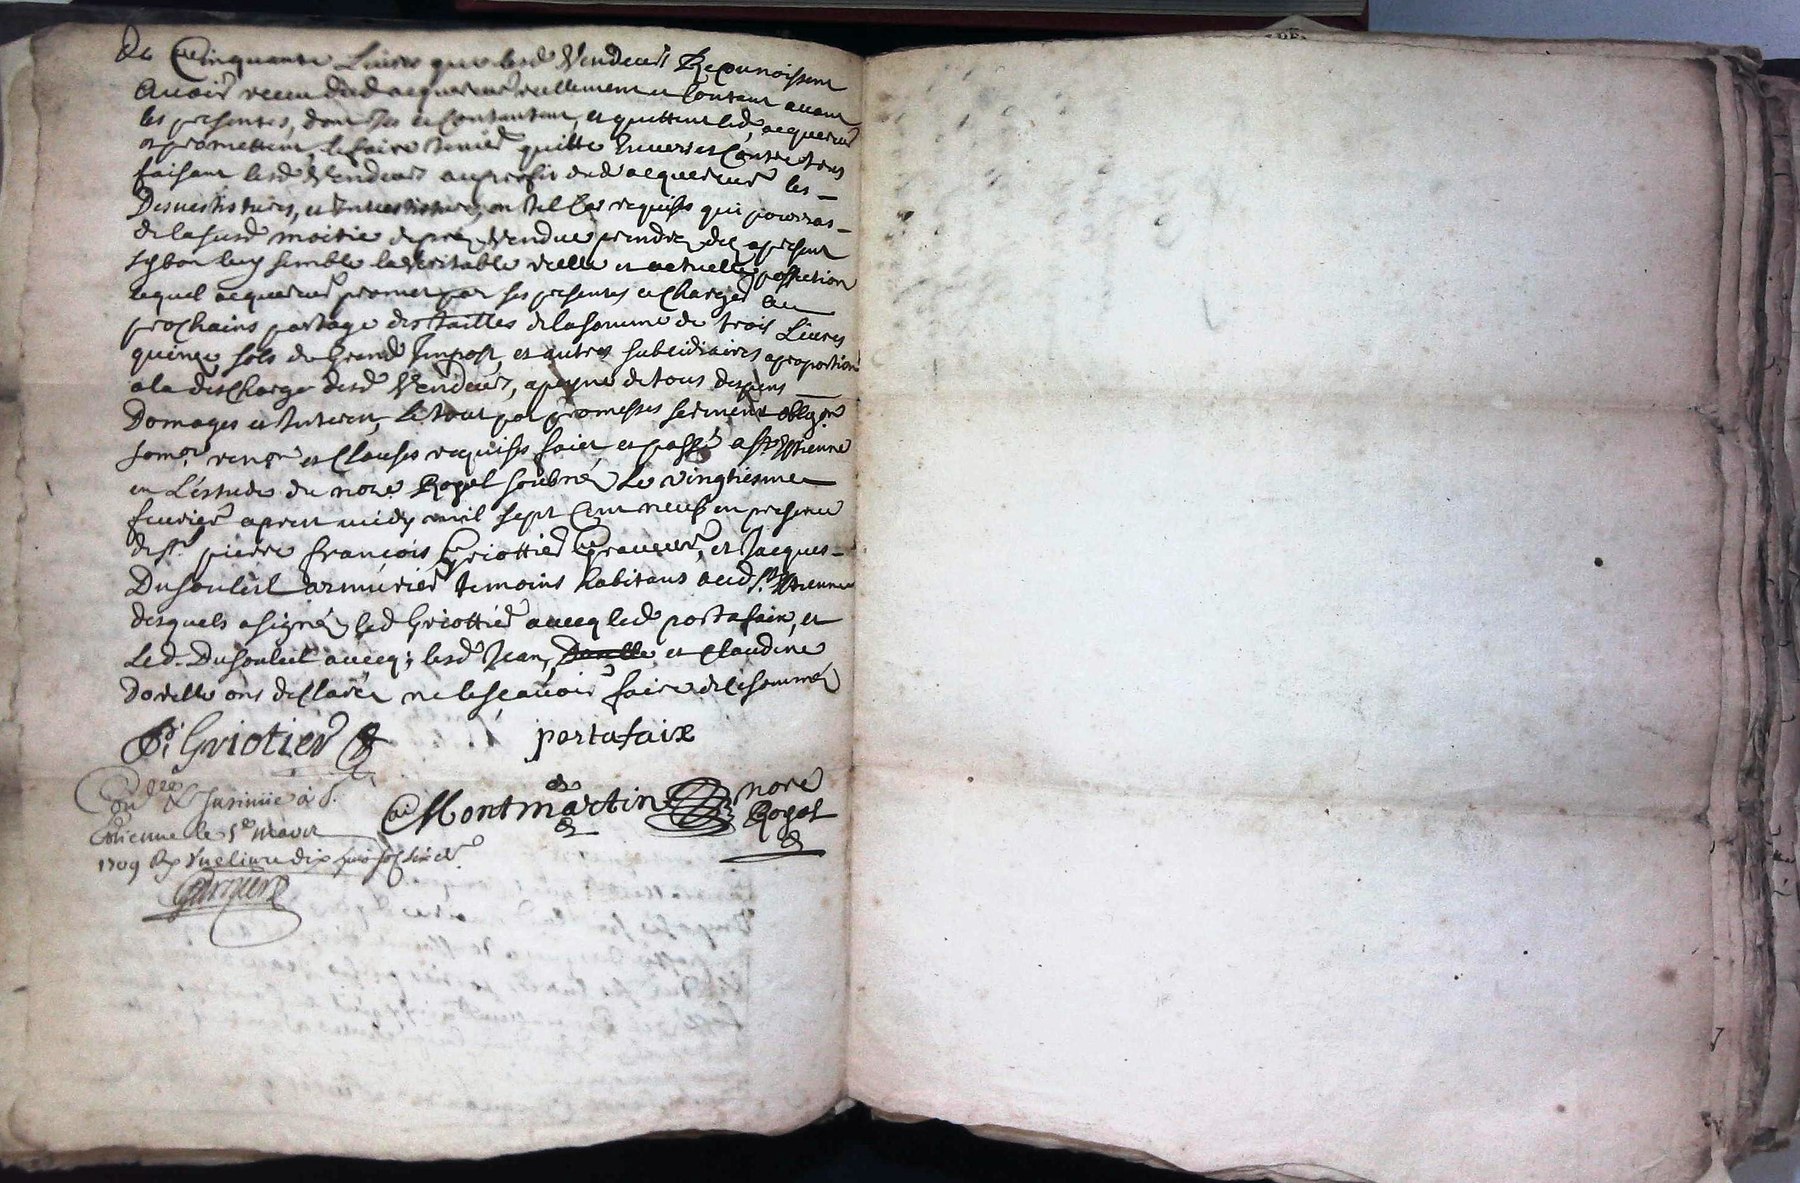 de Cinquante Livres que lesd Vendeurs Reconnoissent
Avoir receu dud acquereur reellement et Contant avant
les presentes, dont Ils se Contentent, et quittent led, acquereur
et promettent le faire tenir quitte Envers et Contre tous
faisant lesd Vendeurs au profit dud acquereur les
Desvestitures, et Investitures, en tel Cas requises qui pourras
de la susd moitié de prez Vendue prendre dez apresent
sy bon luy semble la Veritable reelle et actuelle possession
lequel acquereur promet par ses presentes se Charger au
prochains partage des tailles de la somme de trois Livres
quinze sols de Grand Impost, et autres subsidiaires aproportion
a la desCharge desd Vendeurs, a peyne de tous despens
Domages et Interest, Le tout par promesses serment oblig.on
som.on ren.on et Clauses requises, faict, et passé a St. Estienne
en L'estude du nore Rogel soubné Le vingtiesme
feuvrier apres midy mil sept Cent neuf en presence
de sr. pierre francois Griottier Graveur, et Jacques
Dusouleil armurier temoins habitans aud. St. Estienne
desquels a signé led Griottier avecq led portafaix, et
Led. Dusouleil avecq; lesd Jean, et Claudine
Dorelle ont desClarés ne le sçavoir faire de Ce sommés
P: Griotier portafaix
Montmartin nore
Rogel
Con.lé &amp; Insinué à S.
Etienne le 5e mars
1709 Rx Une livre dix